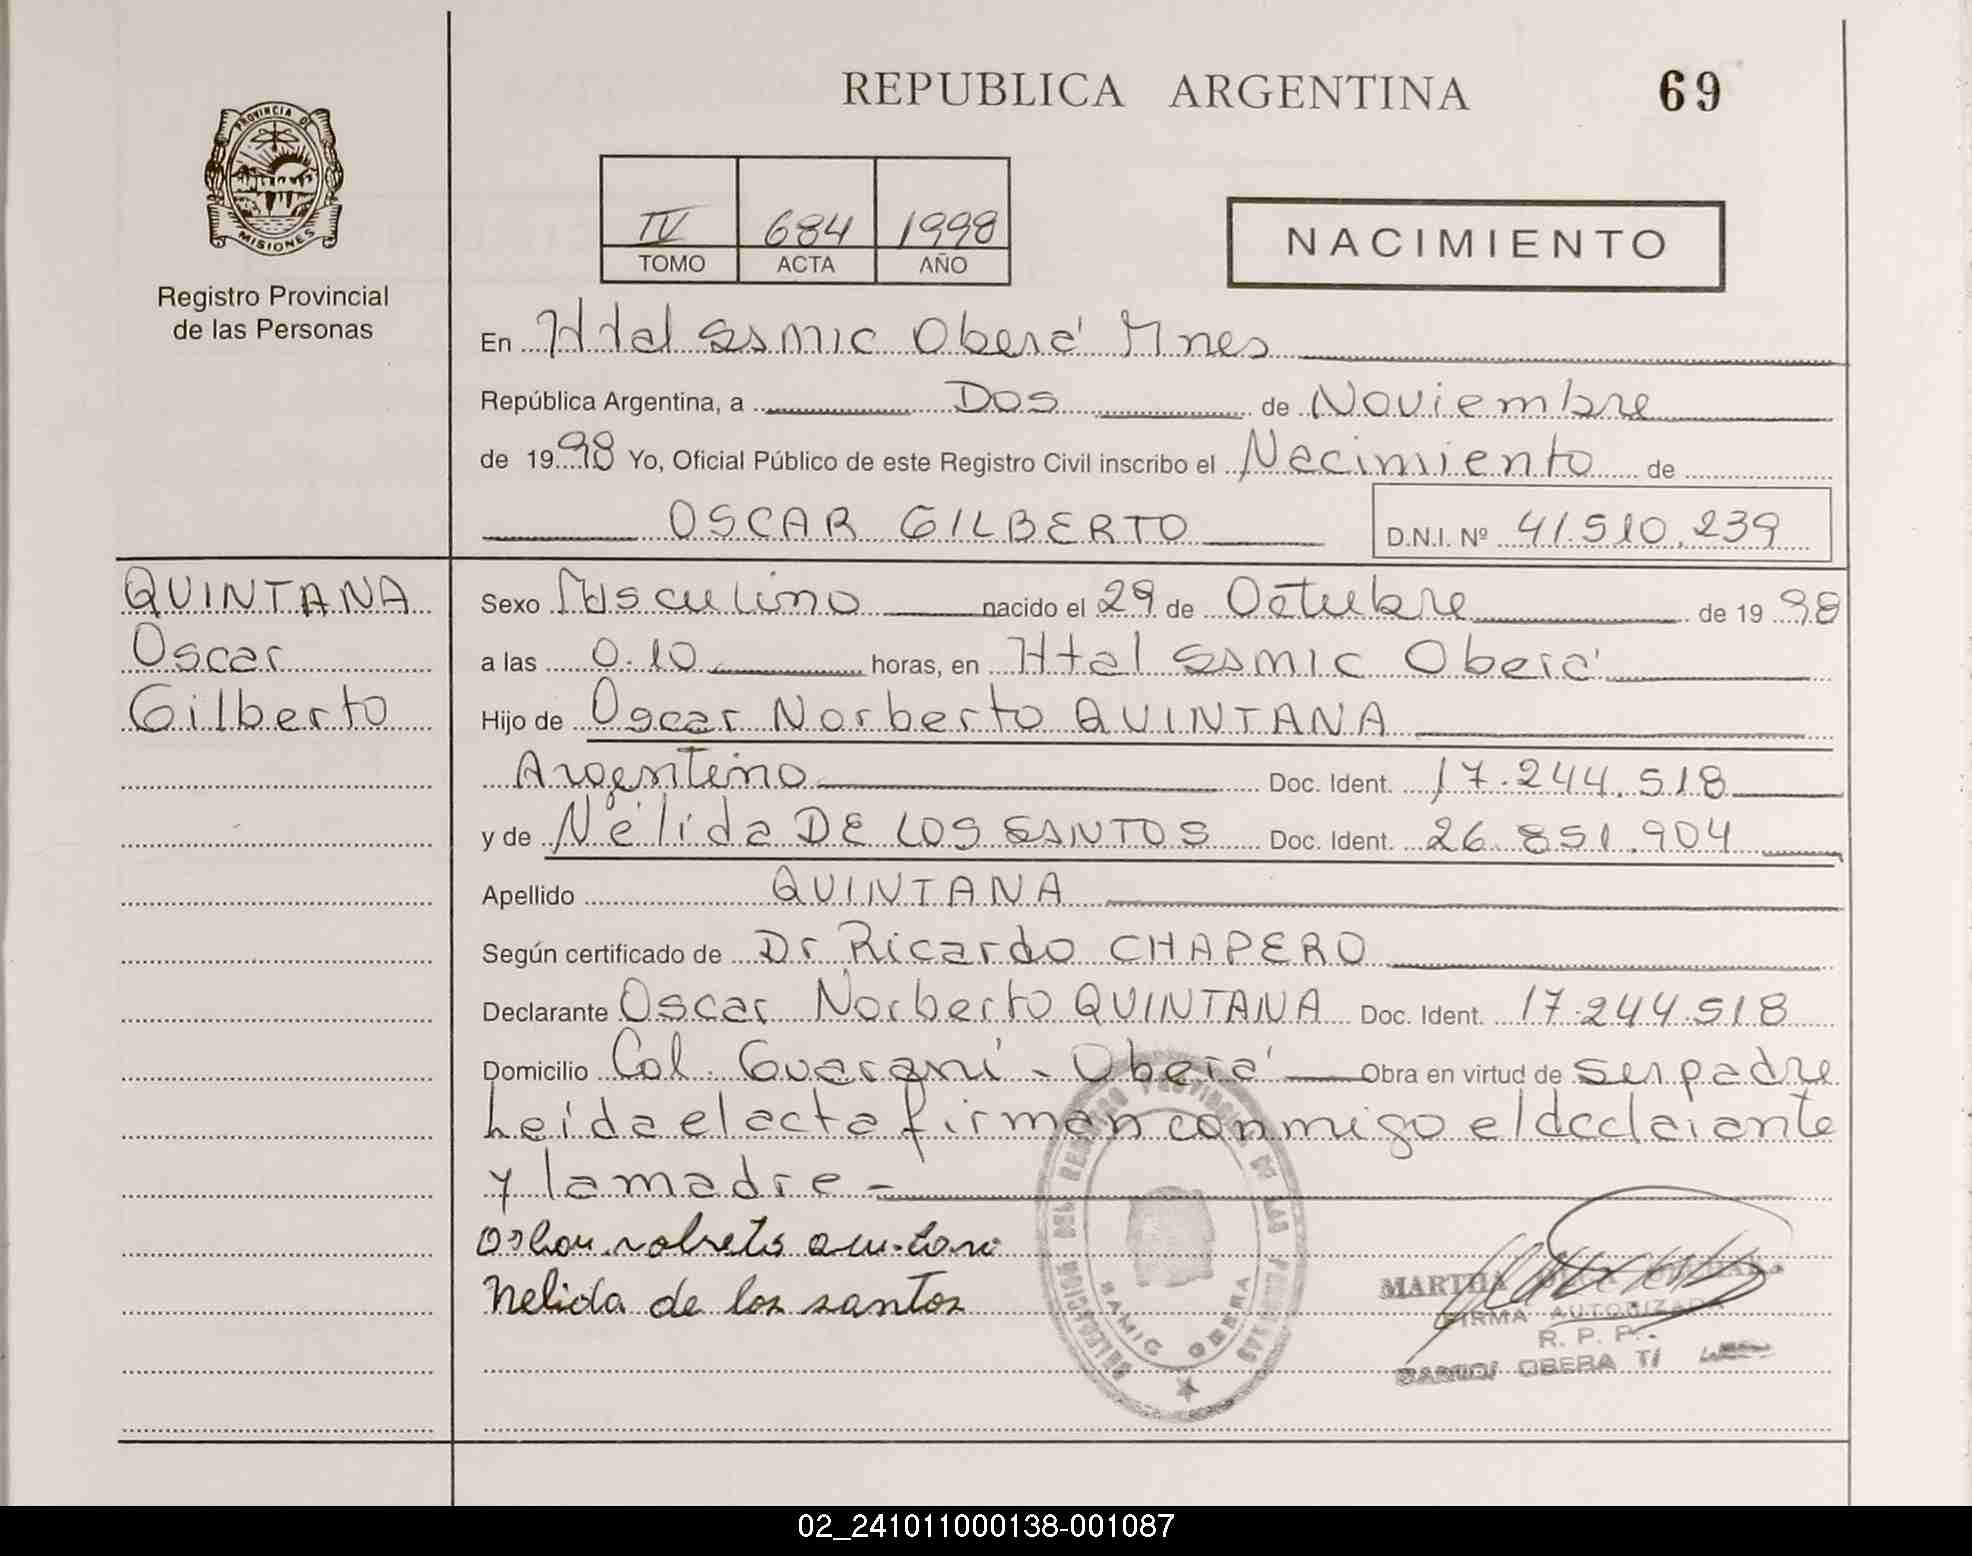 REPUBLICA ARGENTINA
69
PROVINCIA DE
MISIONES
Registro Provincial
de las Personas
IV 684 1998
TOMO ACTA AÑO
NACIMIENTO
En Htal Samic Oberá Mnes
República Argentina, a Dos de Noviembre
de 1998 Yo, Oficial Público de este Registro Civil inscribo el Nacimiento de
OSCAR GILBERTO D.N.I. Nº 41.510.239
QUINTANA
Oscar
Gilberto
Sexo Masculino nacido el 29 de Octubre de 1998
a las 0.10 horas, en Htal Samic Oberá
Hijo de Oscar Norberto QUINTANA
Argentino Doc. Ident. 17.244.518
y de Nélida DE LOS SANTOS Doc. Ident. 26.851.904
Apellido QUINTANA
Según certificado de Dr Ricardo CHAPERO
Declarante Oscar Norberto QUINTANA Doc. Ident. 17.244.518
Domicilio Col. Guaraní - Oberá Obra en virtud de ser padre
Leída el acta firman conmigo el declarante
y la madre -
Nelida de los santos
SAMIC OBERA
MARTHA
FIRMA AUTORIZADA
R. P. P.
OBERA
02_241011000138-001087